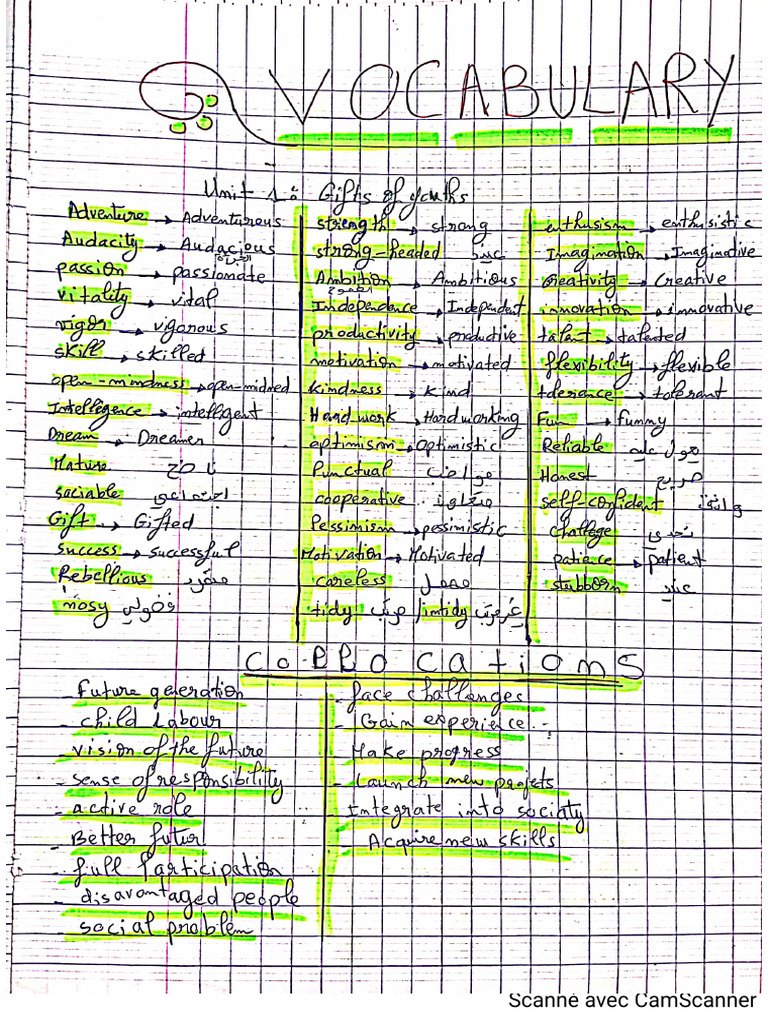 VOCABULARY
Unit 1: Gifts of youths
Adventure → Adventurous
Audacity → Audacious
الجرأة
passion → passionate
vitality → vital
vigor → vigorous
skill → skilled
open-mindness → open-midned
Intelligence → intelligent
Dream → Dreamer
Mature ناضج
sociable اجتماعي
Gift → Gifted
success → successful
Rebellious متمرد
nosy فضولي
strength → strong
strong-headed عنيد
Ambition → Ambitious
الطموح
Independence → Independent
productivity → productive
motivation → motivated
Kindness → Kind
Hard work → Hard working
optimism → Optimistic
Punctual مواضب
cooperative متعاون
Pessimism → pessimistic
Motivation → Motivated
careless مهمل
tidy مرتب / intidy غير مرتب
enthusism → enthusistic
Imagination → Imaginative
Creativity → creative
innovation → innovative
talent → talented
flexibility → flexible
tolerence → tolerant
Fun → funny
Reliable معول عليه
Honest صريح
self-confident واثق
Challege تحدي
patience → patient
stubborn عنيد
Collocations
- Future generation
- child Labour
- vision of the future
- sense of responsibility
- active role
- Better futur
- full Participation
- disavantaged people
- social problem
- face challenges
- Gain experience
- Make progress
- Launch new projets
- Integrate into society
Acquire new skills
Scanné avec CamScanner